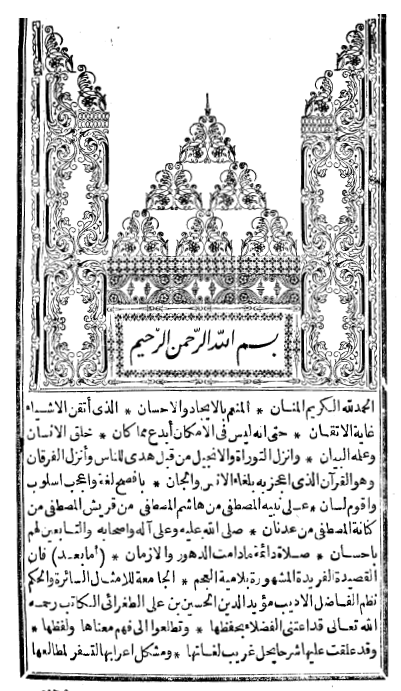 بسم الله الرحمن الرحيم
الحمد لله الكريم المنان * المنعم بالايجاد والاحسان * الذى أتقن الاشياء
غاية الاتقان * حتى انه ليس فى الامكان أبدع مما كان * خلق الانسان
وعلمه البيان * وانزل التوراة والانجيل من قبل هدى للناس وأنزل الفرقان
وهو القرآن الذى اعجز به بلغاء الانس والجان * بافصح لغة واعجب اسلوب
واقوم لسان * على نبيه المصطفى من هاشم المصطفى من قريش المصطفى من
كنانة المصطفى من عدنان * صلى الله عليه وعلى آله واصحابه والتابعين لهم
باحسان * صلاة دائمة مادامت الدهور والازمان * (أما بعد) فان
القصيدة الفريدة المشهورة بلامية العجم * الجامعة للامثال السائرة والحكم
نظم الفاضل الاديب مؤيد الدين الحسين بن على الطغرائى الكاتب رحمه
الله تعالى قد اعتنى الفضلاء بحفظها * وتطالعوا الى فهم معناها ولفظها *
وقد علقت عليها شرحا يحل غريب لغاتها * ومشكل اعرابها التسفر لمطالعها